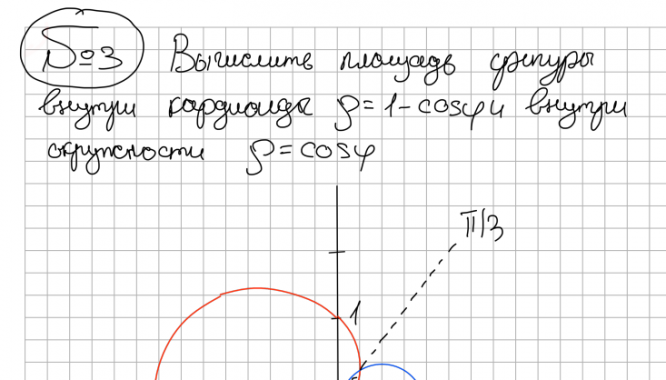 №3 Вычислить площадь фигуры
внутри кардиоиды ρ=1-cosφ и внутри
окружности ρ=cosφ
π/3
1